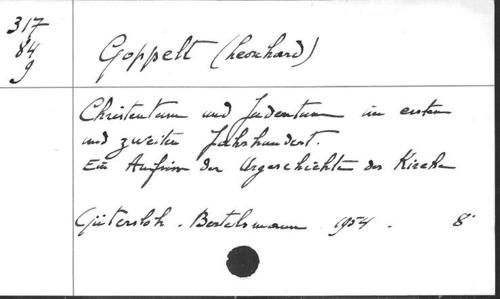 317
84
g
Goppelt (Leonhard)
Christentum und Judentum im ersten
und zweiten Jahrhundert.
Ein Aufriss der Urgeschichte der Kirche
Gütersloh . Bertelsmann 1954 . 8°